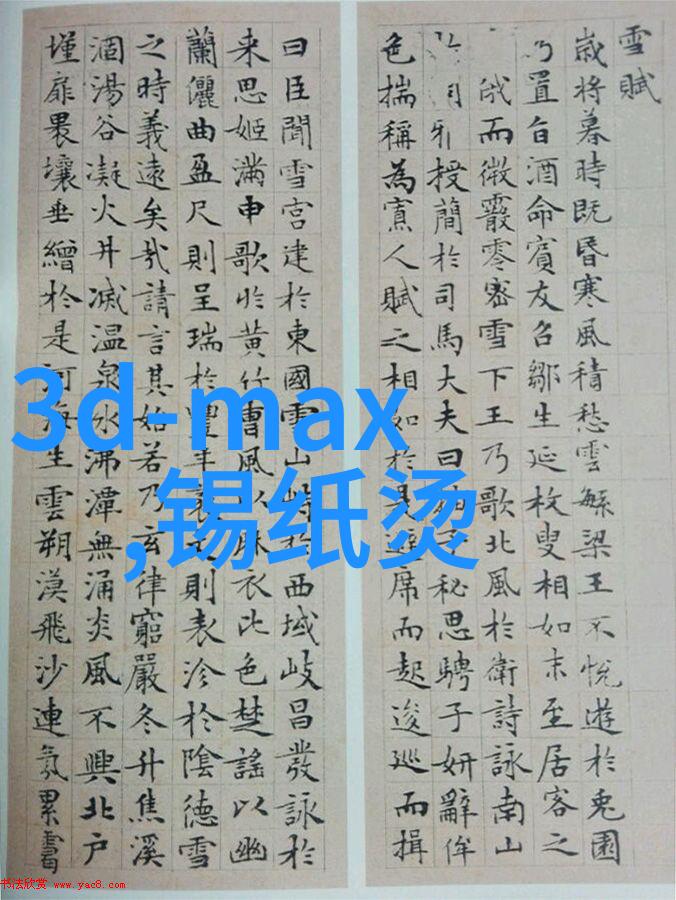 雪賦
歲将暮時既昏寒風積愁雲繁梁王不悅遊於兎園
乃置旨酒命賓友召鄒生延枚叟相如末至居客之
俄而微霰零密雪下王乃歌北風於衛詩詠南山
授簡於司馬大夫曰抽子秘思騁子妍辭侔
色揣稱為寡人賦之相如於是避席而起逡巡而揖
曰臣聞雪宫建於東國雪山峙於西域岐昌發詠於
来思姬滿申歌於黄竹曹風以麻衣比色楚謠以幽
蘭儷曲盈尺則呈瑞於豐年袤丈則表沴於陰德雪
之時義遠矣哉請言其始若乃玄律窮嚴冬升焦溪
涸湯谷凝火井滅温泉氷沸潭無涌炎風不興北户
墐扉裸壤垂繒於是河海生雲朔漠飛沙連氛累靄
3d-max
,锡纸烫
书法欣赏 www.yac8.com